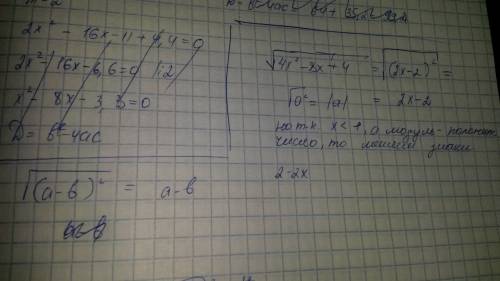 2x² - 16x - 11 + 4,4 = 0
2x² - 16x - 6,6 = 0 |:2
x² - 8x - 3,3 = 0
D = b² - 4ac
√(a-b)² = a-b
√4x² - 8x + 4 = √(2x-2)² =
√a² = |a| = 2x-2
но т.к. x < 1, а модуль - положит.
число, то меняем знаки
2-2x